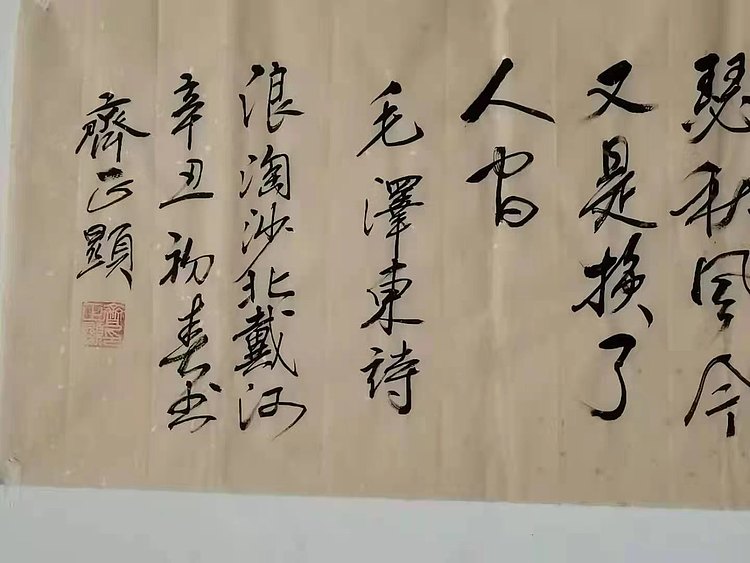 瑟秋风今
又是换了
人间
毛澤東詩
浪淘沙北戴河
辛丑初春书
齊正顯